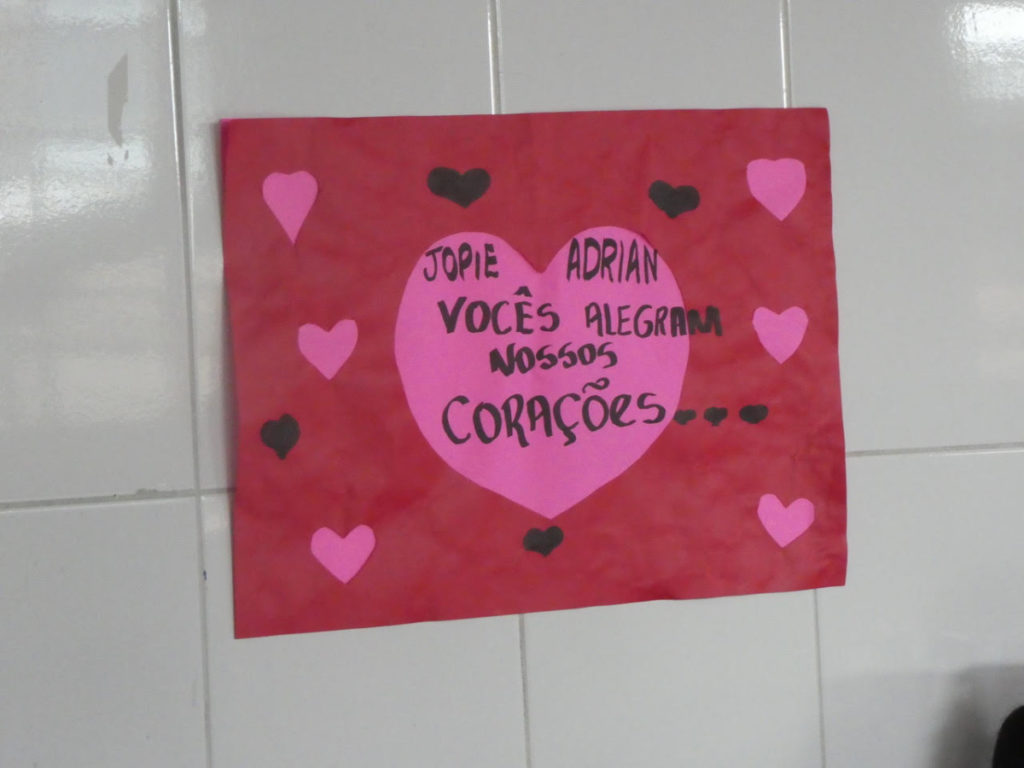 JOPIE ADRIAN
VOCÊS ALEGRAM
NOSSOS
CORAÇÕES...